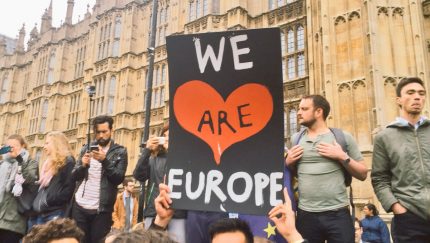 WE
ARE
EUROPE